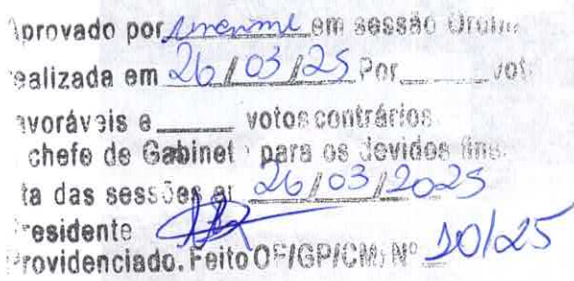 provado por unanime em sessão Ordin
ealizada em 26/03/25 Por ____ vot
avoráveis e ____ votos contrários
chefe de Gabinet para os devidos fins
ta das sessões 26/03/2025
residente
Providenciado. Feito OF/GP/CM; Nº 10/25